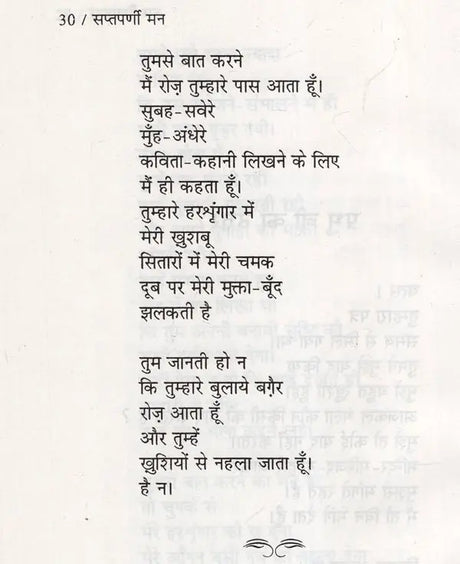 30 / सप्तपर्णी मन
तुमसे बात करने
मैं रोज़ तुम्हारे पास आता हूँ।
सुबह-सवेरे
मुँह-अंधेरे
कविता-कहानी लिखने के लिए
मैं ही कहता हूँ।
तुम्हारे हरशृंगार में
मेरी ख़ुशबू
सितारों में मेरी चमक
दूब पर मेरी मुक्ता-बूँद
झलकती है
तुम जानती हो न
कि तुम्हारे बुलाये बग़ैर
रोज़ आता हूँ
और तुम्हें
ख़ुशियों से नहला जाता हूँ।
है न।